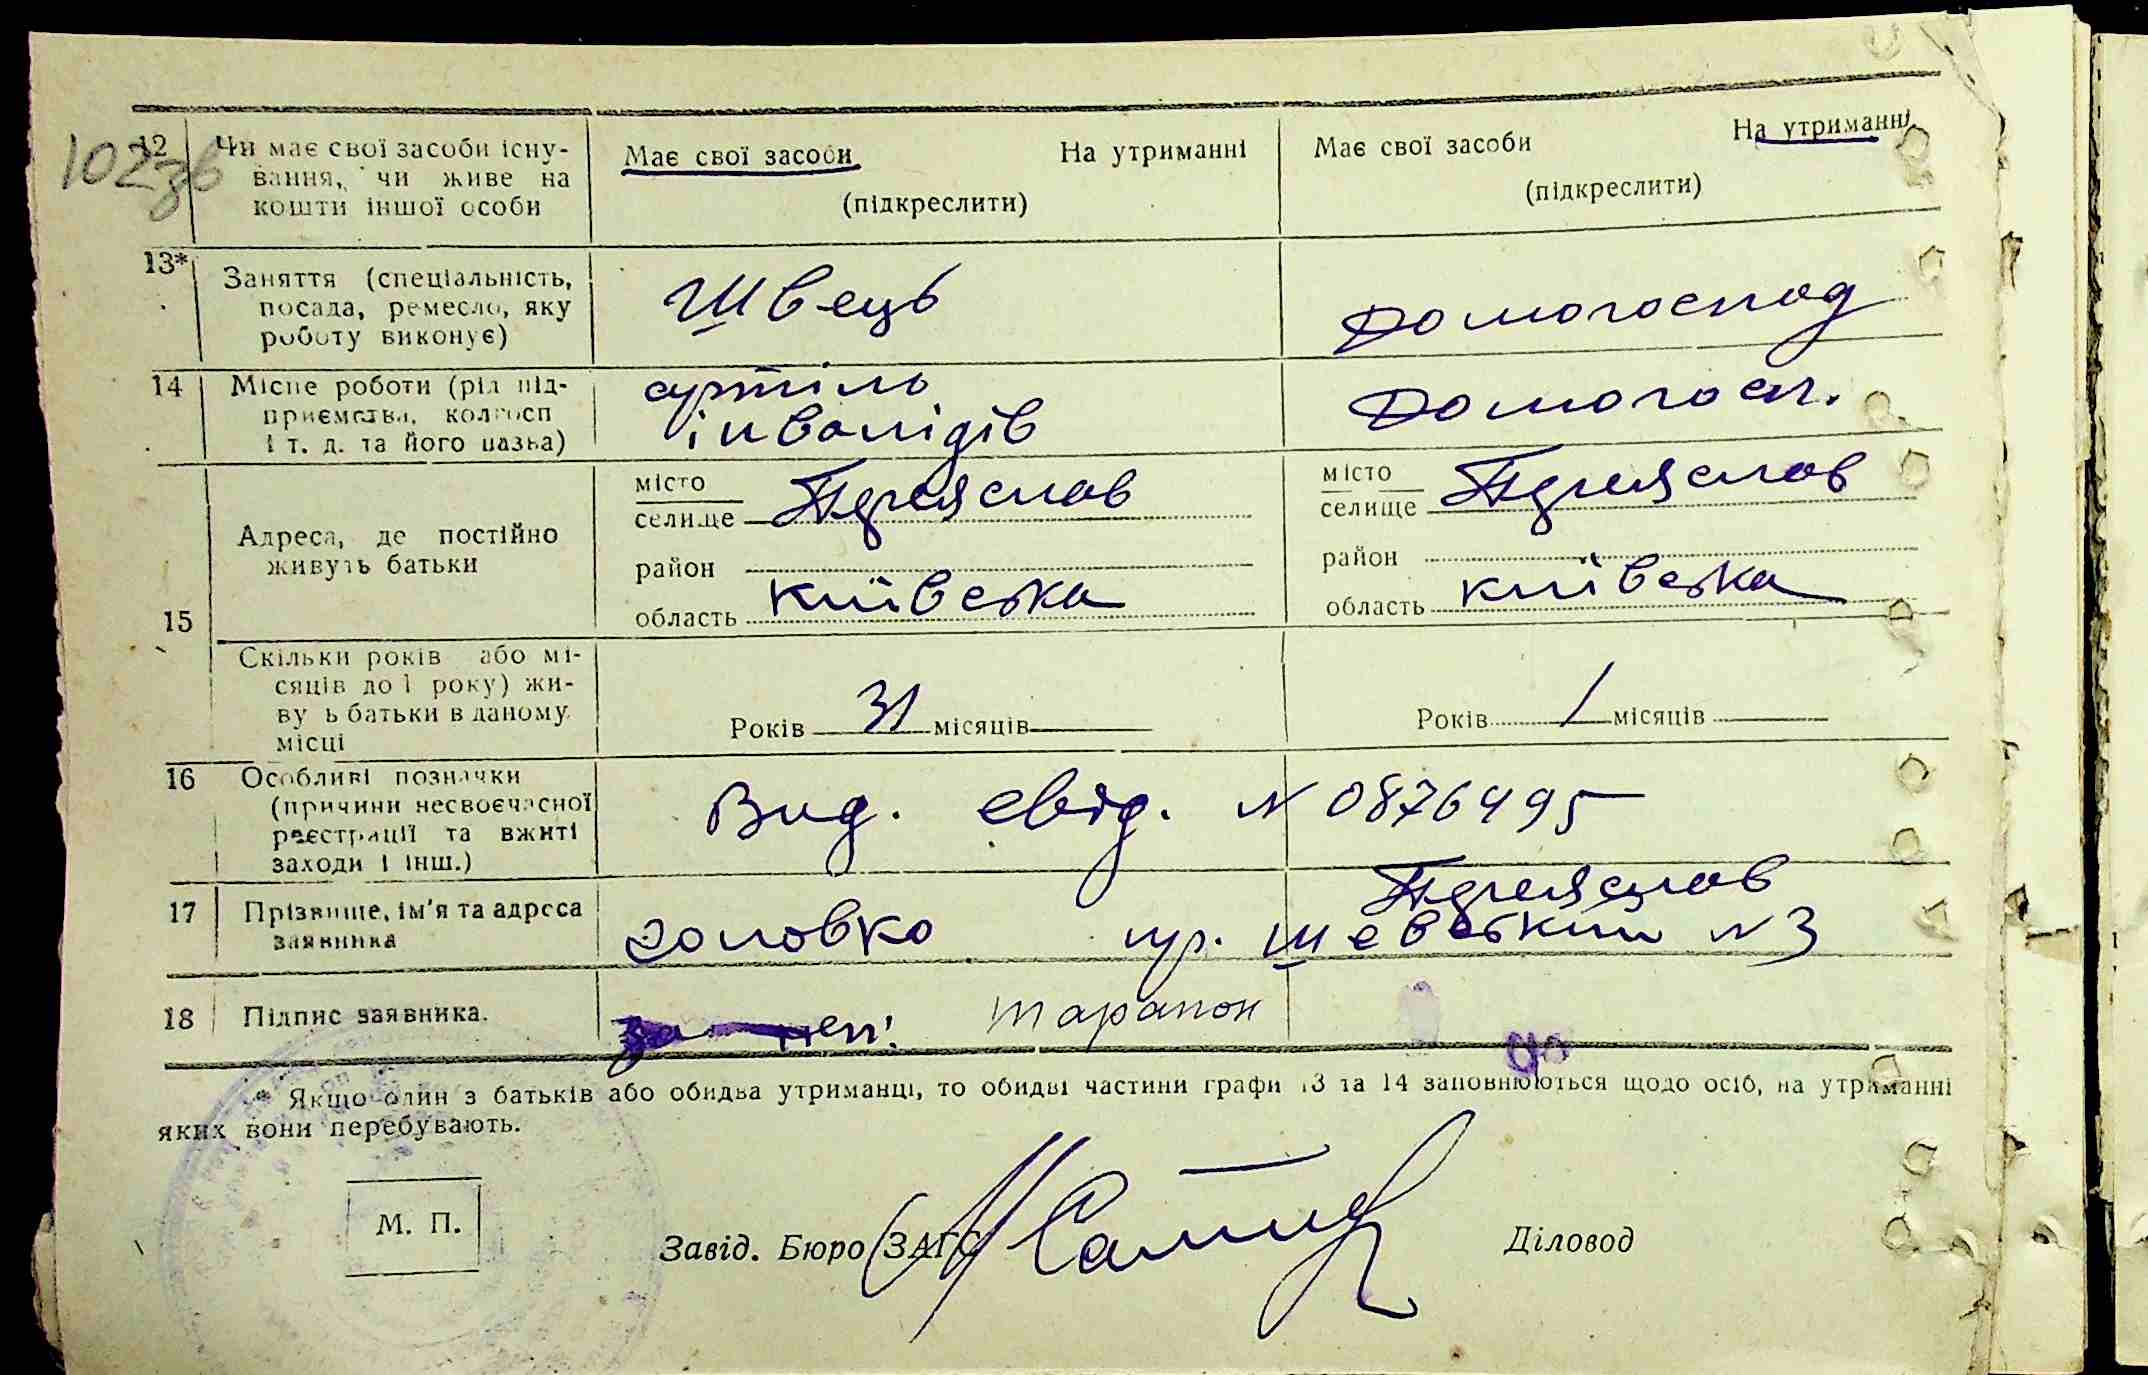 102 зв
12 Чи має свої засоби існу-
вання, чи живе на
кошти іншої особи
Має свої засоби На утриманні
(підкреслити)
Має свої засоби На утриманні
(підкреслити)
13* Заняття (спеціальність,
посада, ремесло, яку
роботу виконує)
Швець
Домогоспод
14 Місце роботи (рід під-
приємства, колгосп
і т. д. та його назва)
артіль
інвалідів
Домогосп.
15 Адреса, де постійно
живуть батьки
місто
селище Переяслав
район
область Київська
місто
селище Переяслав
район
область Київська
Скільки років або мі-
сяців до 1 року) жи-
ву ь батьки в даному
місці
Років 31 місяців
Років 1 місяців
16 Особливі позначки
(причини несвоєчасної
реєстрації та вжиті
заходи і інш.)
Вид. свід. N 0876495
17 Прізвище, ім'я та адреса
заявника
Переяслав
Головко пр. Шевський N 3
18 Підпис заявника.
за неп! Тарапон
* Якщо один з батьків або обидва утриманці, то обидві частини графи 13 та 14 заповнюються щодо осіб, на утриманні
яких вони перебувають.
М. П.
Завід. Бюро ЗАГС
Діловод